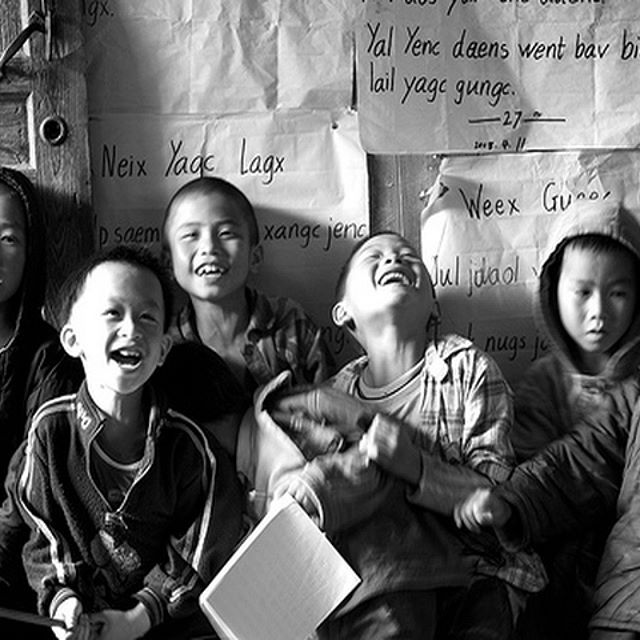 gx.
Yal Yenc daens went bav bi
lail yagc gungc.
27
Neix Yagc Lagx
p saem xangc jenc
Weex Gu
Jul jdaol
nugs j